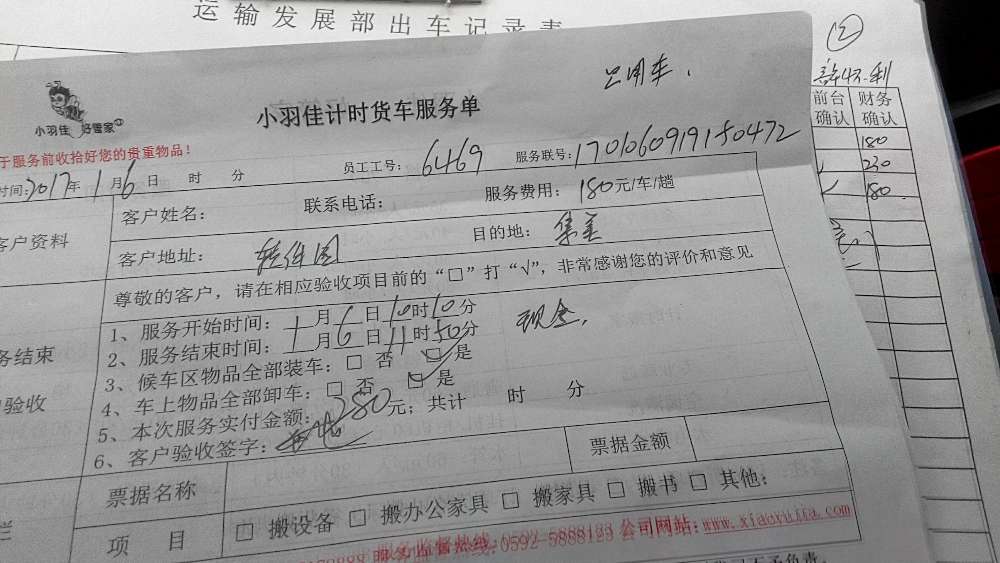 运输发展部出车记录表
②
前台确认 财务确认
180
230
180
小羽佳 好管家
小羽佳计时货车服务单
于服务前收拾好您的贵重物品!
时间:2017年1月6日 时 分 员工工号:6469 服务联号:1701060919150472
客户资料
客户姓名: 联系电话: 服务费用:180元/车/趟
客户地址:软件园 目的地:集美
尊敬的客户,请在相应验收项目前的“□”打“√”,非常感谢您的评价和意见
1、服务开始时间:1月6日10时10分
2、服务结束时间:1月6日11时50分
现金.
3、候车区物品全部装车:□ 否 ☑是
4、车上物品全部卸车:□ 否 ☑是
5、本次服务实付金额:280元;共计 时 分
6、客户验收签字:
务结束
验收
票据名称 票据金额
项 目 □ 搬设备 □ 搬办公家具 □ 搬家具 □ 搬书 □ 其他:
服务监督热线:0592-5888123 公司网站:www.xiaoyujia.com